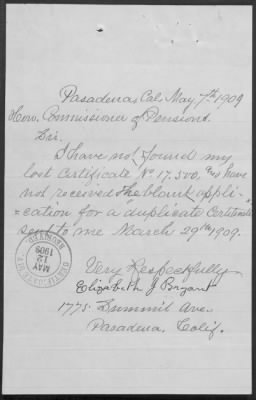 Pasadena, Cal. May 7th 1909
Hon. Commissioner of Pensions.
Sir.
I have not found my
lost Certificate No 17,540, and have
not received the blank appli-
-cation for a "duplicate Certificate"
sent to me March 29th 1909.
Very Respectfully
Elizabeth J Bryant
1775. Summit Ave.
Pasadena, Calif.
MAY
12
1909